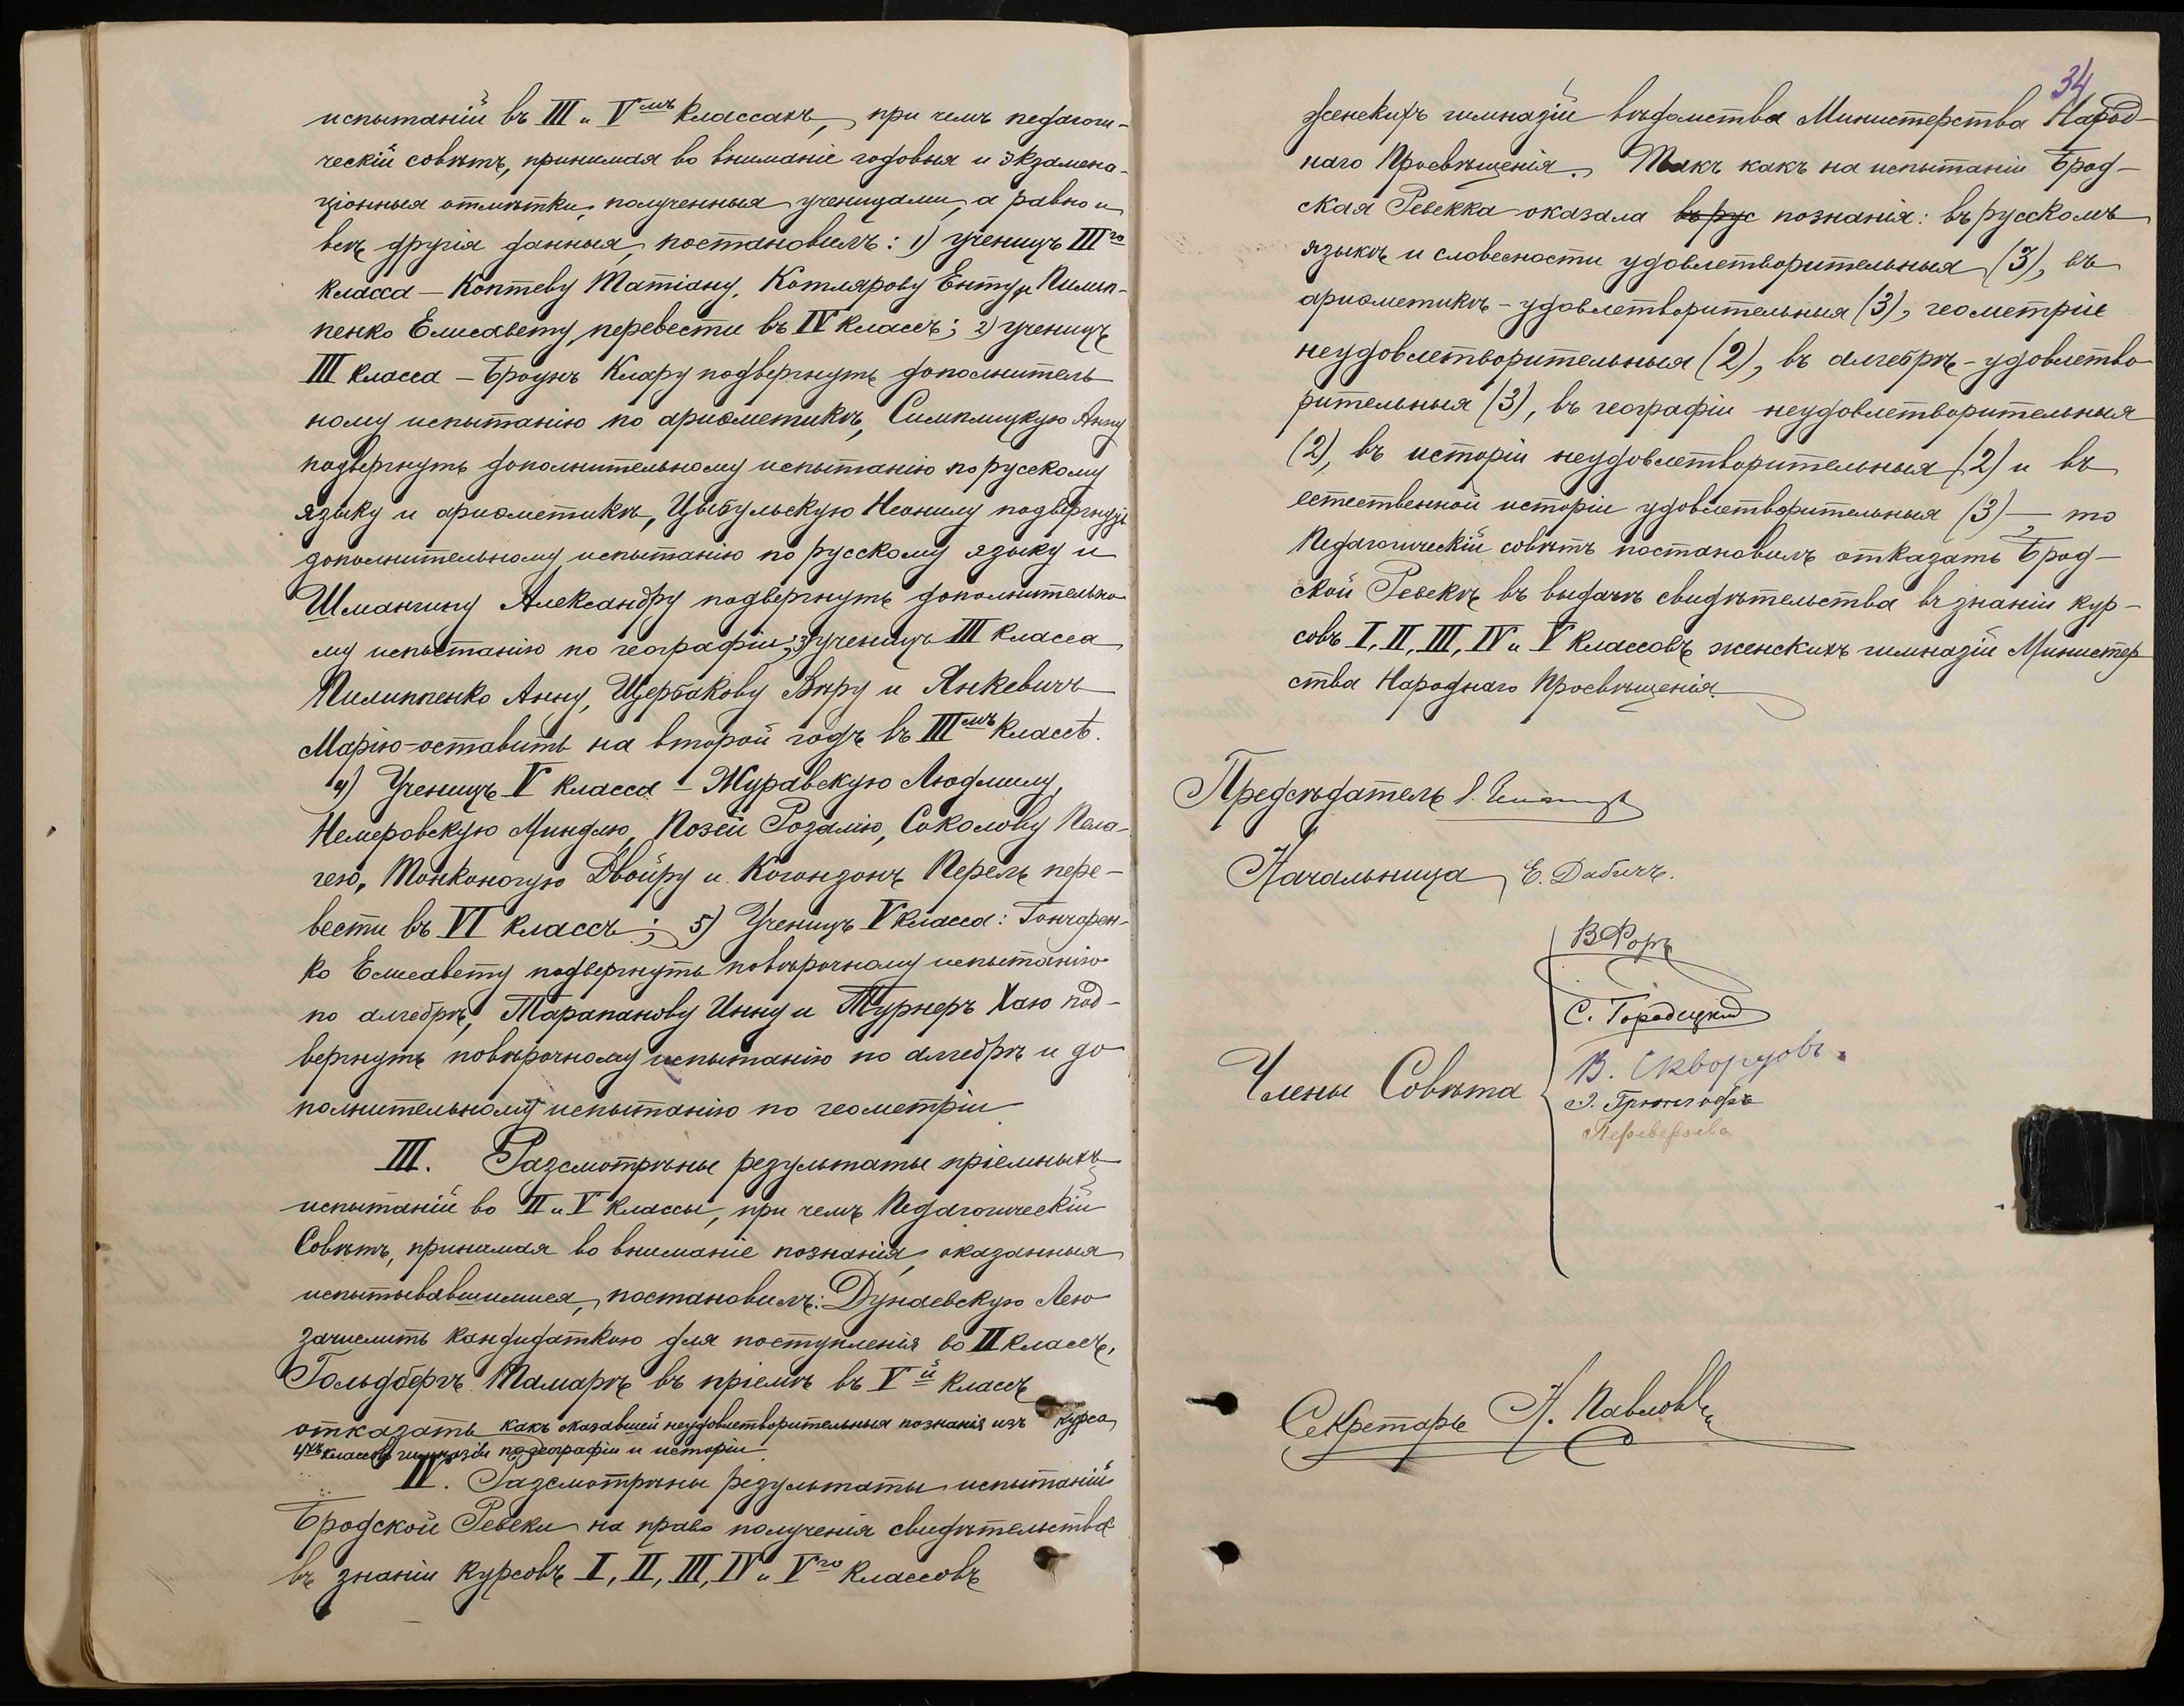 испытаній въ III и V<sup>мъ</sup> классахъ, при чемъ педагоги-
ческій совѣтъ, принимая во вниманіе годовыя и экзамена-
ціонныя отмѣтки, полученныя ученицами, а равно и
всѣ другія данныя, постановилъ: 1) ученицъ III<sup>го</sup>
класса – Коптеву Татіану, Котлярову Енту, Пилип-
пенко Елисавету, перевести въ IV классъ; 2) ученицъ
III класса – Броунъ Клару подвергнуть дополнитель
ному испытанію по ариѳметикѣ, Анну
подвергнуть дополнительному испытанію по русскому
языку и ариѳметикѣ, Цыбульскую Неонилу подвергнуть
дополнительному испытанію по русскому языку и
Шмангину Александру подвергнуть дополнительно
му испытанію по географіи; 3) ученицъ III класса
Пилиппенко Анну, Щербакову Вѣру и Янкевичъ
Марію – оставить на второй годъ въ III<sup>мъ</sup> классѣ.
4) Ученицъ V класса – Журавскую Людмилу,
Немеровскую Миндлю, Позей Розалію, Соколову Пела-
гею, Тонконогую Двойру и Когонзонъ Перель пере-
вести въ VI классъ; 5) Ученицъ V класса: Гончарен-
ко Елисавету подвергнуть повѣрочному испытанію
по алгебрѣ, Тарапанову Инну и Турнеръ Хаю под-
вергнуть повѣрочному испытанію по алгебрѣ и до
полнительному испытанію по геометріи
III. Разсмотрѣны результаты пріемныхъ
испытаній во II и V классы, при чемъ Педагогическій
Совѣтъ, принимая во вниманіе познанія, оказанныя
испытывавшимися, постановилъ: Дунаевскую Лею
зачислить кандидаткою для поступленія во II классъ,
Гольдбергъ Тамарѣ въ пріемѣ въ V<sup>й</sup> классъ
отказать какъ оказавшей неудовлетворительныя познанія изъ курса
4<sup>хъ</sup> классовъ гимназіи по географіи и исторіи
IV. Разсмотрѣны результаты испытаній
Бродской Ревеки на право полученія свидѣтельства
въ знаніи курсовъ I, II, III, IV и V<sup>го</sup> классовъ
34
женскихъ гимназій вѣдомства Министерства Народ-
наго Просвѣщенія. Такъ какъ на испытаніи Брод-
ская Ревекка оказала въ рус познанія: въ русскомъ
языкѣ и словесности удовлетворительныя (3), въ
ариѳметикѣ – удовлетворительныя (3), геометріи
неудовлетворительныя (2), въ алгебрѣ – удовлетво
рительныя (3), въ географіи неудовлетворительныя
(2), въ исторіи неудовлетворительныя (2) и въ
естественной исторіи удовлетворительныя (3) –, то
Педагогическій совѣтъ постановилъ отказать Брод-
ской Ревекѣ въ выдачѣ свидѣтельства въ знаніи кур-
совъ I, II, III, IV и V классовъ женскихъ гимназій Министер
ства Народнаго Просвѣщенія
Предсѣдатель
Начальница Е. Дабичъ.
С. Городецкій
Члены Совѣта
В. Скворцовъ.
Переверзева
Секретарь Н. Павловъ